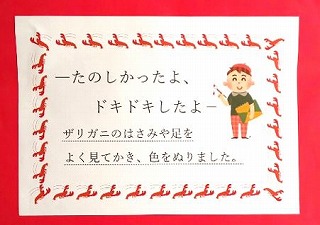 ―たのしかったよ、
ドキドキしたよ―
ザリガニのはさみや足を
よく見てかき、色をぬりました。